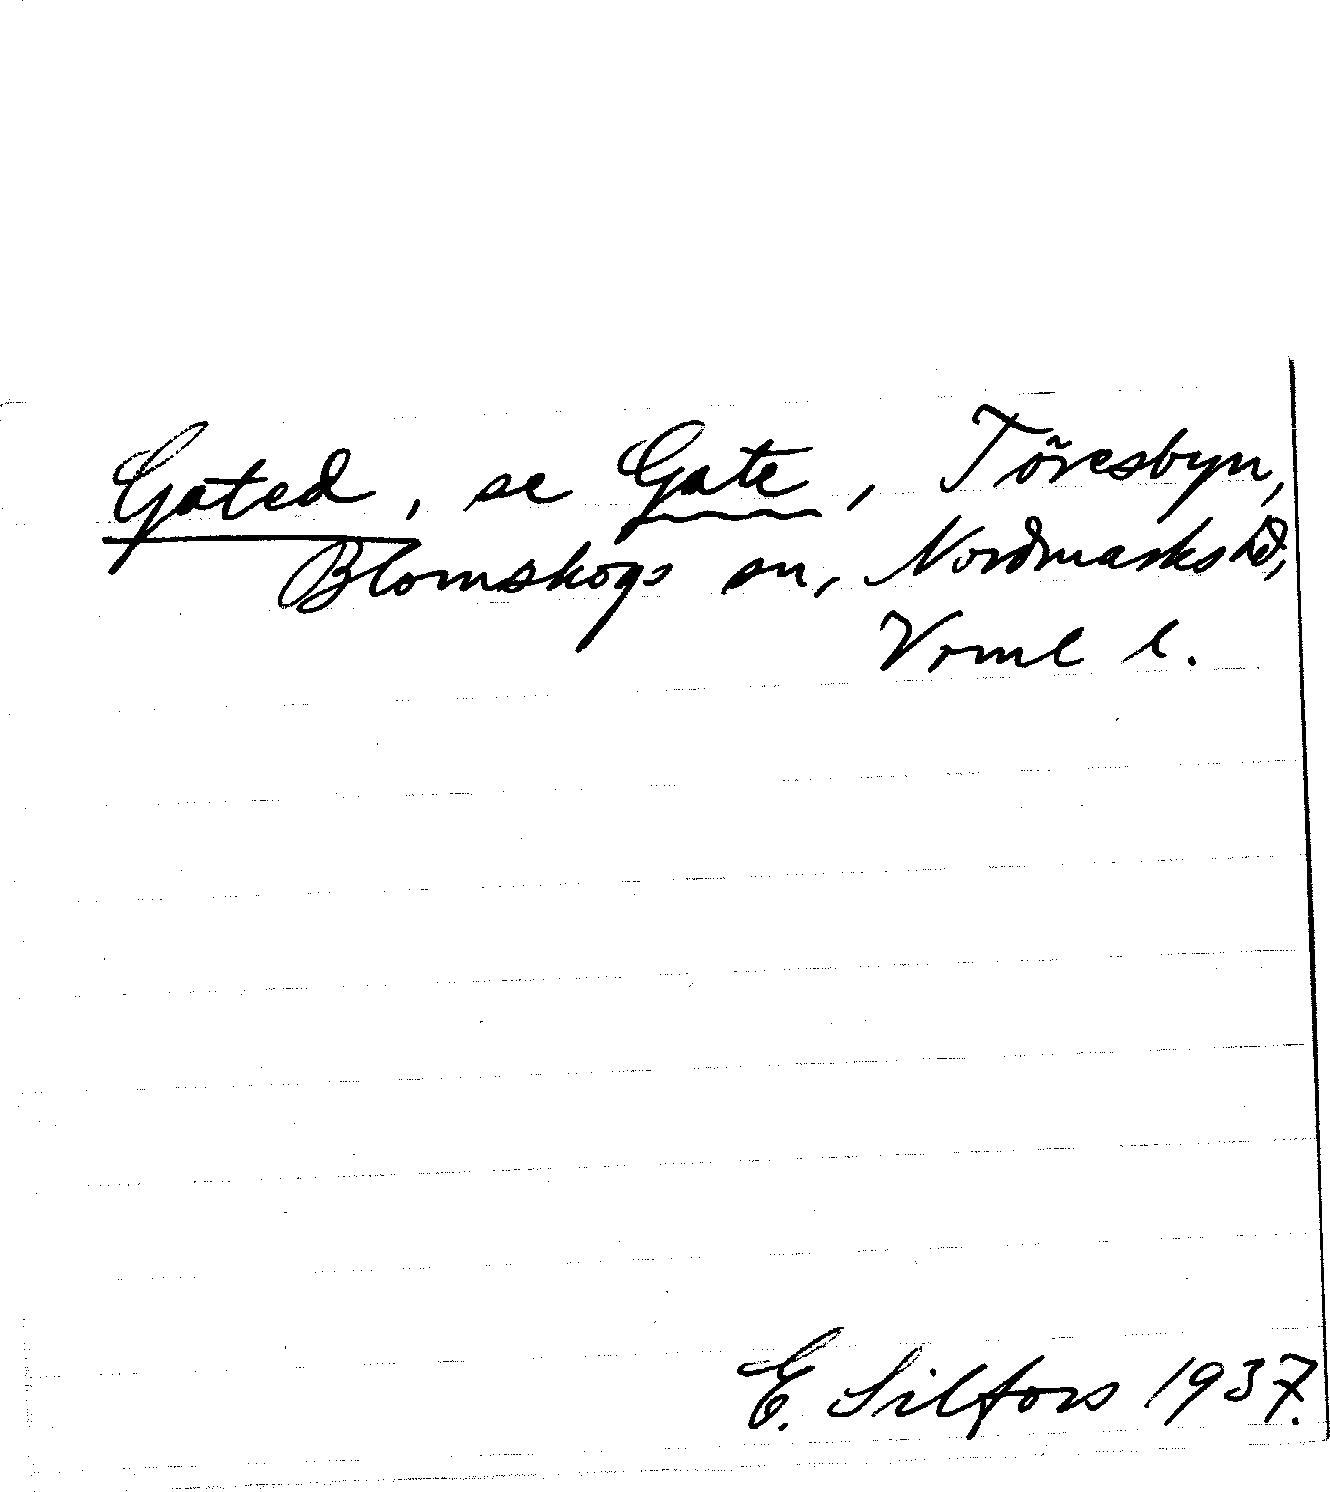 Gated, se Gate, Töresbyn,
Blomskogs sn, Nordmarks hd,
Vrml l.
E. Silfors 1937.